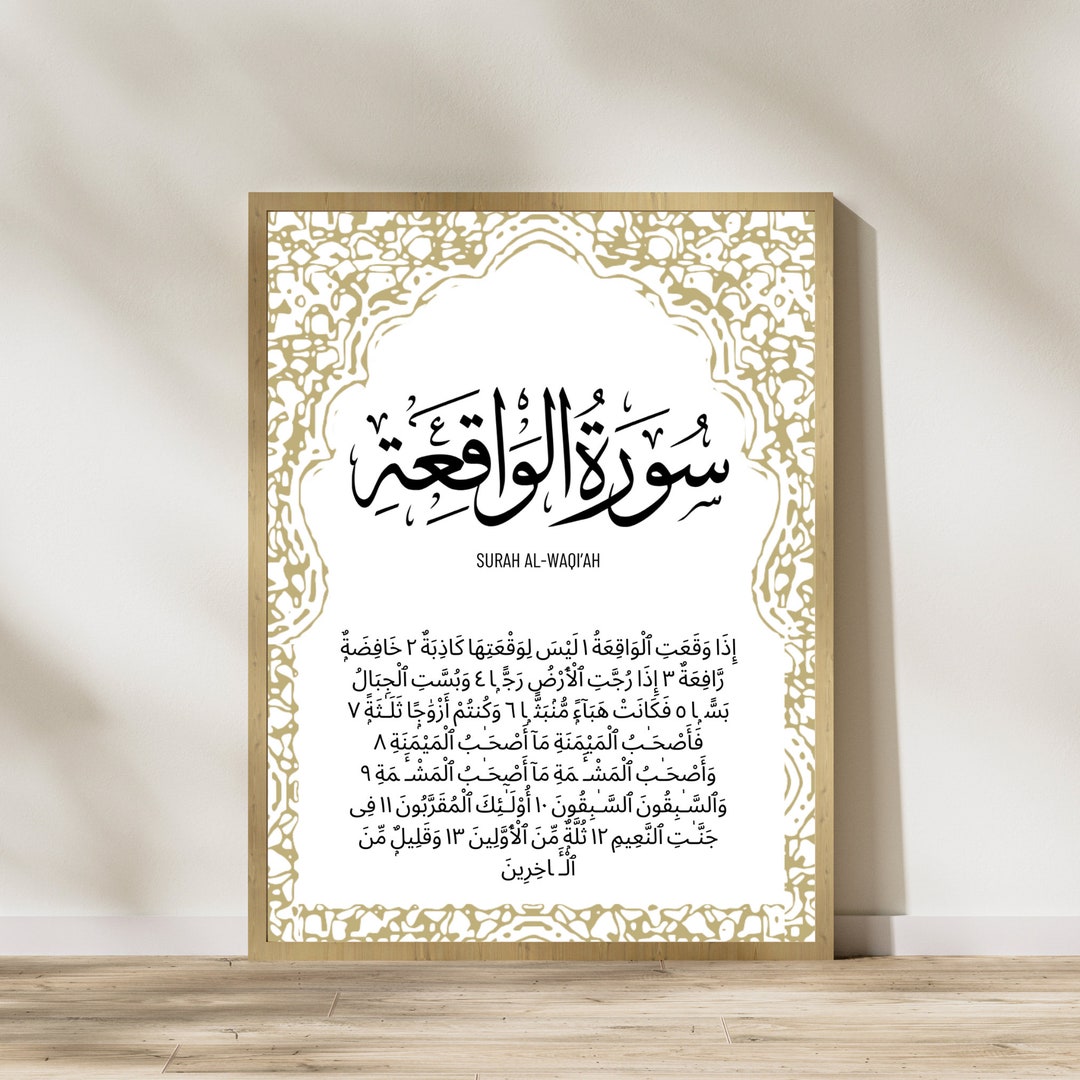 سُورَةُ الْوَاقِعَةِ
SURAH AL-WAQI'AH
إِذَا وَقَعَتِ ٱلْوَاقِعَةُ ١ لَيْسَ لِوَقْعَتِهَا كَاذِبَةٌ ٢ خَافِضَةٌۭ
رَّافِعَةٌ ٣ إِذَا رُجَّتِ ٱلْأَرْضُ رَجًّۭا ٤ وَبُسَّتِ ٱلْجِبَالُ
بَسًّۭا ٥ فَكَانَتْ هَبَآءًۭ مُّنۢبَثًّۭا ٦ وَكُنتُمْ أَزْوَٰجًۭا ثَلَـٰثَةًۭ ٧
فَأَصْحَـٰبُ ٱلْمَيْمَنَةِ مَآ أَصْحَـٰبُ ٱلْمَيْمَنَةِ ٨
وَأَصْحَـٰبُ ٱلْمَشْـَٔمَةِ مَآ أَصْحَـٰبُ ٱلْمَشْـَٔمَةِ ٩
وَٱلسَّـٰبِقُونَ ٱلسَّـٰبِقُونَ ١٠ أُو۟لَـٰٓئِكَ ٱلْمُقَرَّبُونَ ١١ فِى
جَنَّـٰتِ ٱلنَّعِيمِ ١٢ ثُلَّةٌۭ مِّنَ ٱلْأَوَّلِينَ ١٣ وَقَلِيلٌۭ مِّنَ
ٱلْـَٔاخِرِينَ